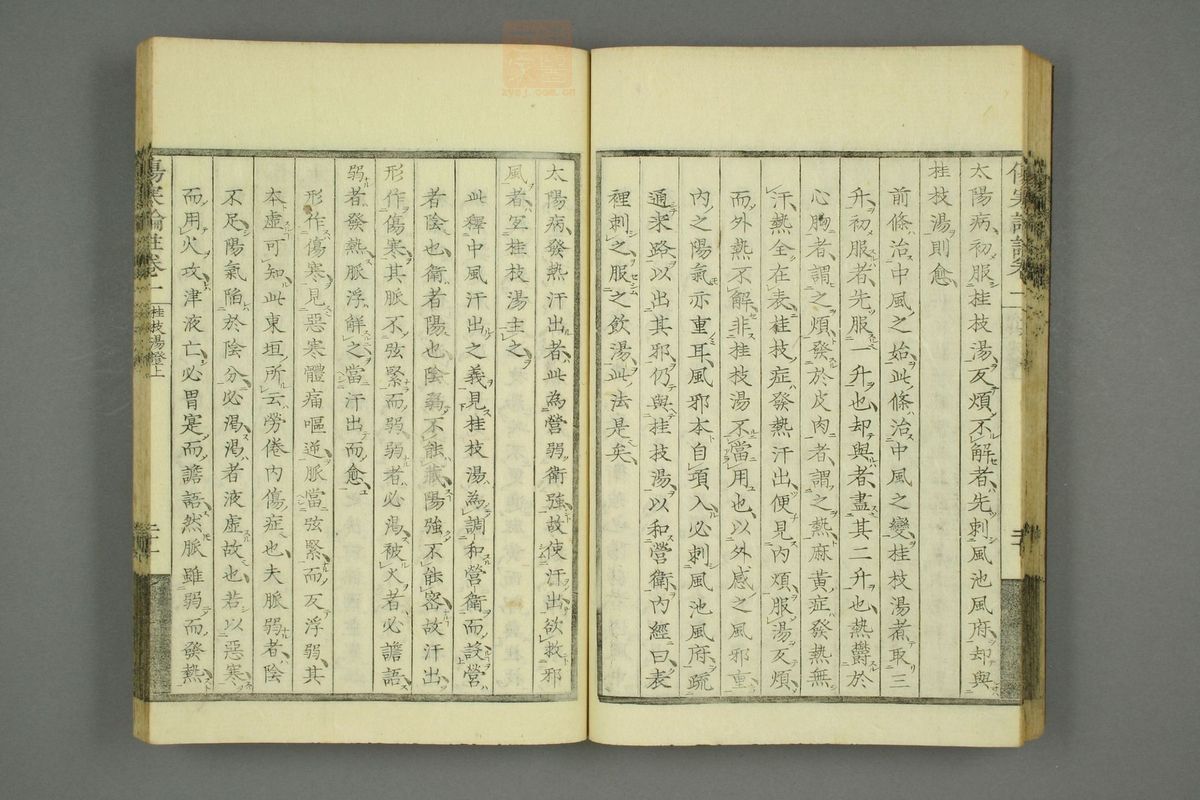 太陽病初服桂枝湯反煩不解者先刺風池風府却與
桂枝湯則愈
前條治中風之始此條治中風之變桂枝湯煮取三
升初服者先服一升也却與者盡其二升也熱鬱於
心胸者謂之煩發於皮肉者謂之熱麻黃症發熱無
汗熱全在表桂枝症發熱汗出便見內煩服湯反煩
而外熱不解非桂枝湯不當用也以外感之風邪重
內之陽氣亦重耳風邪本自項入必刺風池風府疏
通來路以出其邪仍與桂枝湯以和營衛內經曰表
裡刺之服之飲湯此法是矣
太陽病發熱汗出者此為營弱衛強故使汗出欲救邪
風者宜桂枝湯主之
此釋中風汗出之義見桂枝湯為調和營衛而設營
者陰也衛者陽也陰弱不能藏陽強不能密故汗出
形作傷寒其脈不弦緊而弱弱者必渴被火者必譫語
弱者發熱脈浮解之當汗出而愈
形作傷寒見惡寒體痛嘔逆脈當弦緊而反浮弱其
本虛可知此東垣所云勞倦內傷症也夫脈弱者陰
不足陽氣陷於陰分必渴渴者液虛故也若以惡寒
而用火攻津液亡必胃寔而譫語然脈雖弱而發熱
傷寒論註卷一
桂枝湯證上
二十一
zysj.com.cn